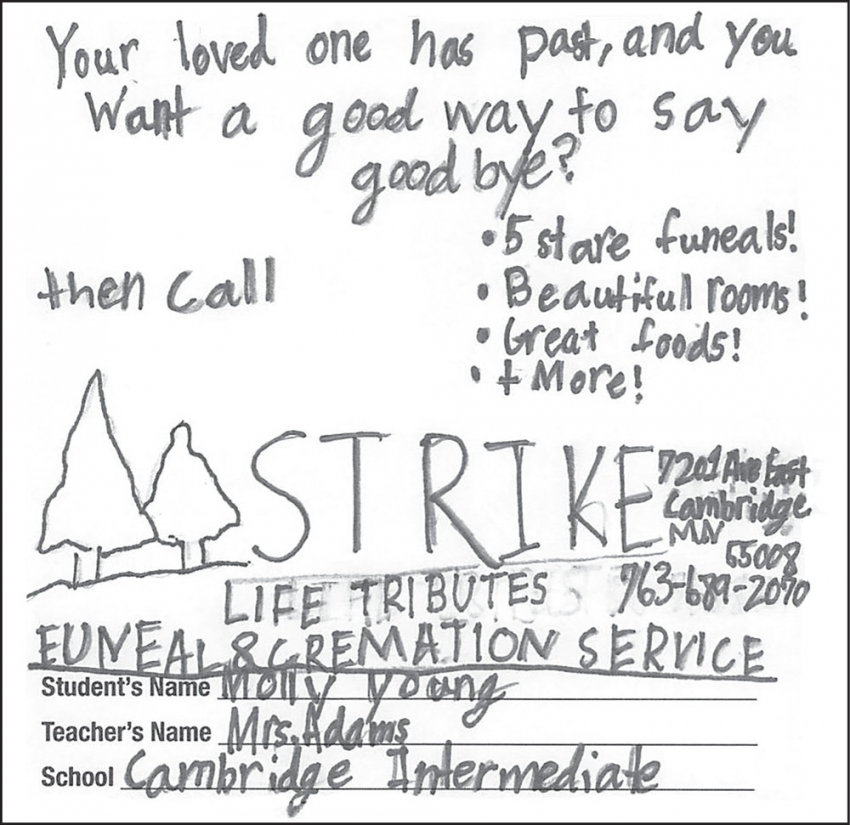 Your loved one has past, and you
Want a good way to say
good bye?
• 5 stare funeals!
then call
• Beautiful rooms!
• Great foods!
• + More!
STRIKE
7201 Ave East
Cambridge
MN
55008
LIFE TRIBUTES
763-689-2070
FUNEAL & CREMATION SERVICE
Student's Name Molly Young
Teacher's Name Mrs. Adams
School Cambridge Intermediate